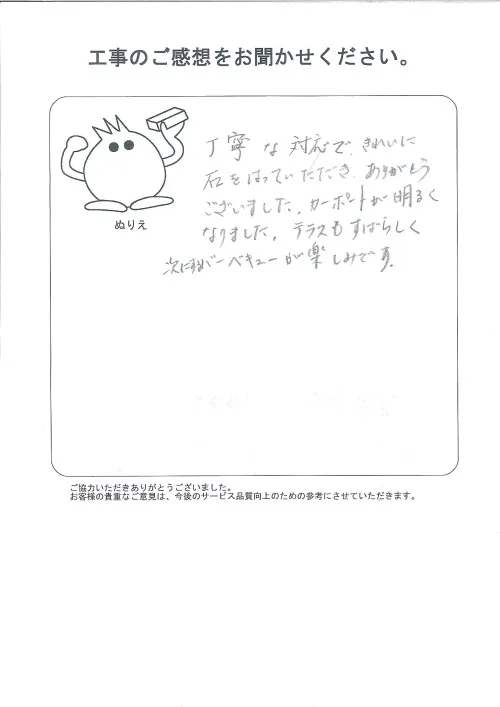 工事のご感想をお聞かせください。
ぬりえ
丁寧な対応で、きれいに
石をはっていただき、ありがとう
ございました。カーポートが明るく
なりました。テラスもすばらしく
次にするバーベキューが楽しみです。
ご協力いただきありがとうございました。
お客様の貴重なご意見は、今後のサービス品質向上のための参考にさせていただきます。